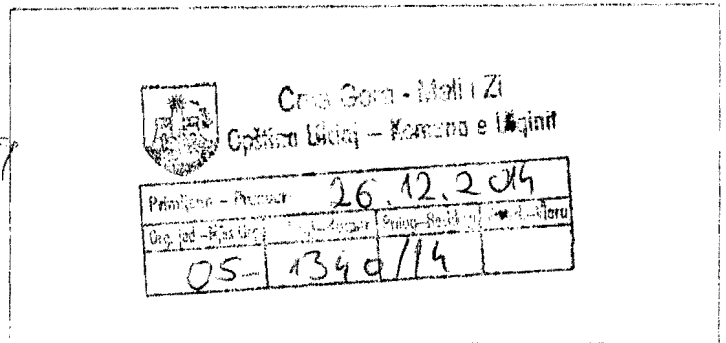 Crna Gora - Mali i Zi
Opština Ulcinj – Komuna e Ulqinit
Primljeno – Pranuar: 26.12.2014
Org. jed –
05- 1340/14